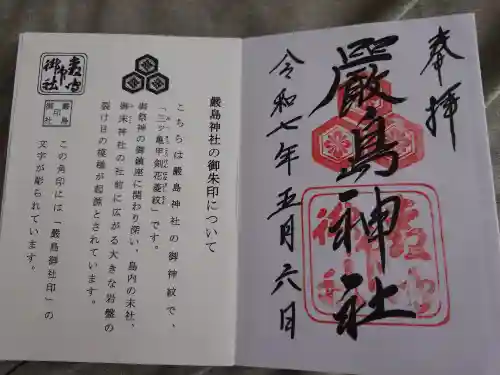 奉拝
嚴島神社
令和七年五月六日
嚴島神社の御朱印について
こちらは嚴島神社の御神紋で、
「三ッ亀甲剣花菱紋」です。
御祭神の御鎮座に関わり深い、島内の末社、
御床神社の社殿に広がる大きな岩盤の
裂け目の模様が起源とされています。
この角印には「嚴島御社印」の
文字が彫られています。
嚴島
御社印